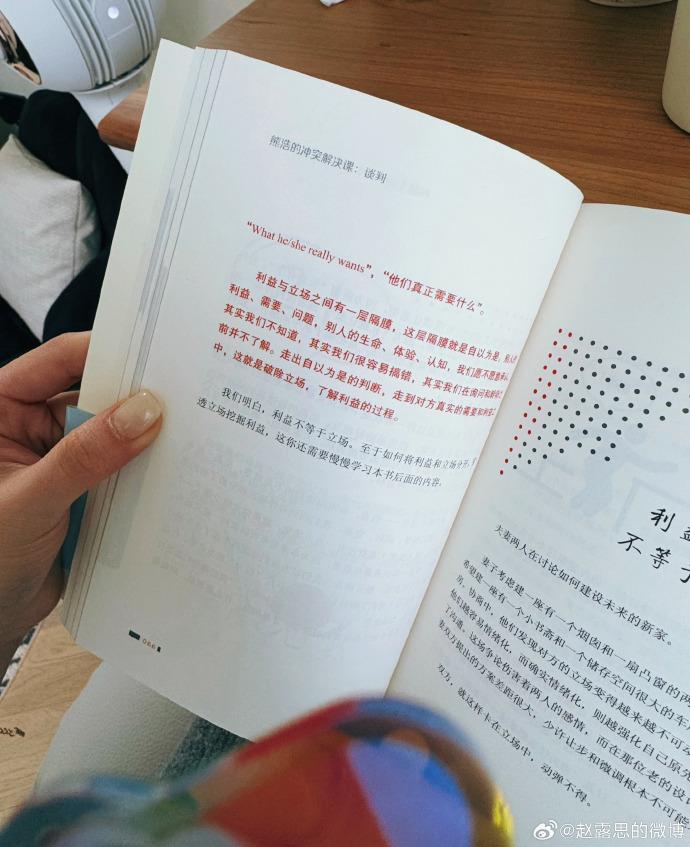 熊浩的冲突解决课：谈判
“What he/she really wants”，“他们真正需要什么”。
利益与立场之间有一层隔膜，这层隔膜就是自以为是，别人的
利益、需要、问题，别人的生命、体验、认知，我们愿不愿意承认
其实我们不知道，其实我们很容易搞错，其实我们在询问和
前并不了解。走出自以为是的判断，走到对方真实的需要和利益
中，这就是破除立场，了解利益的过程。
我们明白，利益不等于立场。至于如何将利益和立场分开，
透立场挖掘利益，这你还需要慢慢学习本书后面的内容。
利益
不等于
夫妻两人在讨论如何建设未来的新家。
妻子考虑建一座有一个烟囱和一扇凸窗的两
希望建一座有一个小书斋和一个储存空间很大的车
房。协商中，他们发现对方的立场变得越来越不可
他们越容易情绪化，而确实情绪化，则越强化自己原
了沟通。这场争论伤害着两人的感情，而在那位老的设
妻双方提出的方案差距很大，少许让步和微调根本不可能
双方，就这样卡在立场中，动弹不得。
@赵露思的微博